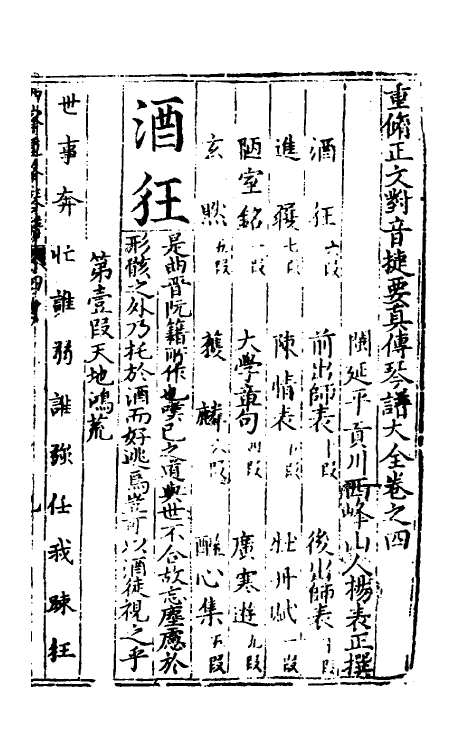 重脩正文對音捷要真傳琴譜大全卷之四
閩延平貢川西峰山人楊表正撰
酒狂六段 前出師表十段 後出師表十段
進履七段 陳情表十段 牡丹賦一段
陋室銘一段 大學章句四段 廣寒遊九段
玄黙九段 獲麟六段 酣心集五段
酒狂
是曲晉阮籍所作也嘆已之道與世不合故忘塵慮於
形骸之外乃托於酒而好逃焉豈可以酒徒視之乎
第壹段天地鴻荒
世事奔忙誰弱誰強任我踈狂